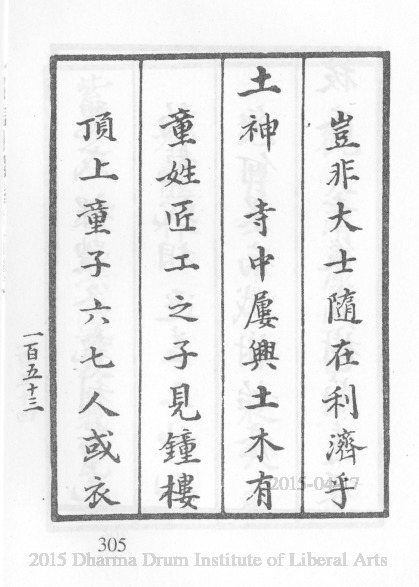 豈非大士隨在利濟乎
土神 寺中屢興土木有
童姓匠工之子見鐘樓
頂上童子六七人或衣
一百五十三
305
2015-04-17
2015 Dharma Drum Institute of Liberal Arts